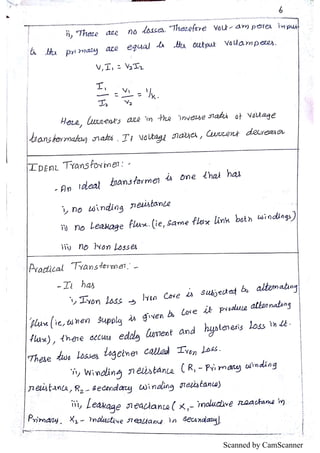 6
ii, There are no losses. Therefore volt-amperes input
to the primary are equal to the output voltamperes.
V₁I₁ = V₂I₂
I₁/I₂ = V₁/V₂ = 1/K.
Here, currents are in the inverse ratio of voltage
transformation ratio. If voltage raises, current decreases
IDEAL Transformer: -
- An ideal transformer is one that has
i, no winding resistance
ii, no Leakage flux. (ie, same flux link both windings)
iii, no Iron Losses
Practical Transformer: -
- It has
i, Iron loss → Iron Core is subjected to alternating
flux (ie, when supply is given to core it produce alternating
flux), there occurs eddy current and hysterisis loss in it.
These two losses together called Iron Loss.
ii, Winding resistance (R₁ - Primary winding
resistance, R₂ - secondary winding resistance)
iii, Leakage reactance (X₁ - inductive reactance in
Primary. X₂ - inductive reactance in secondary)
Scanned by CamScanner